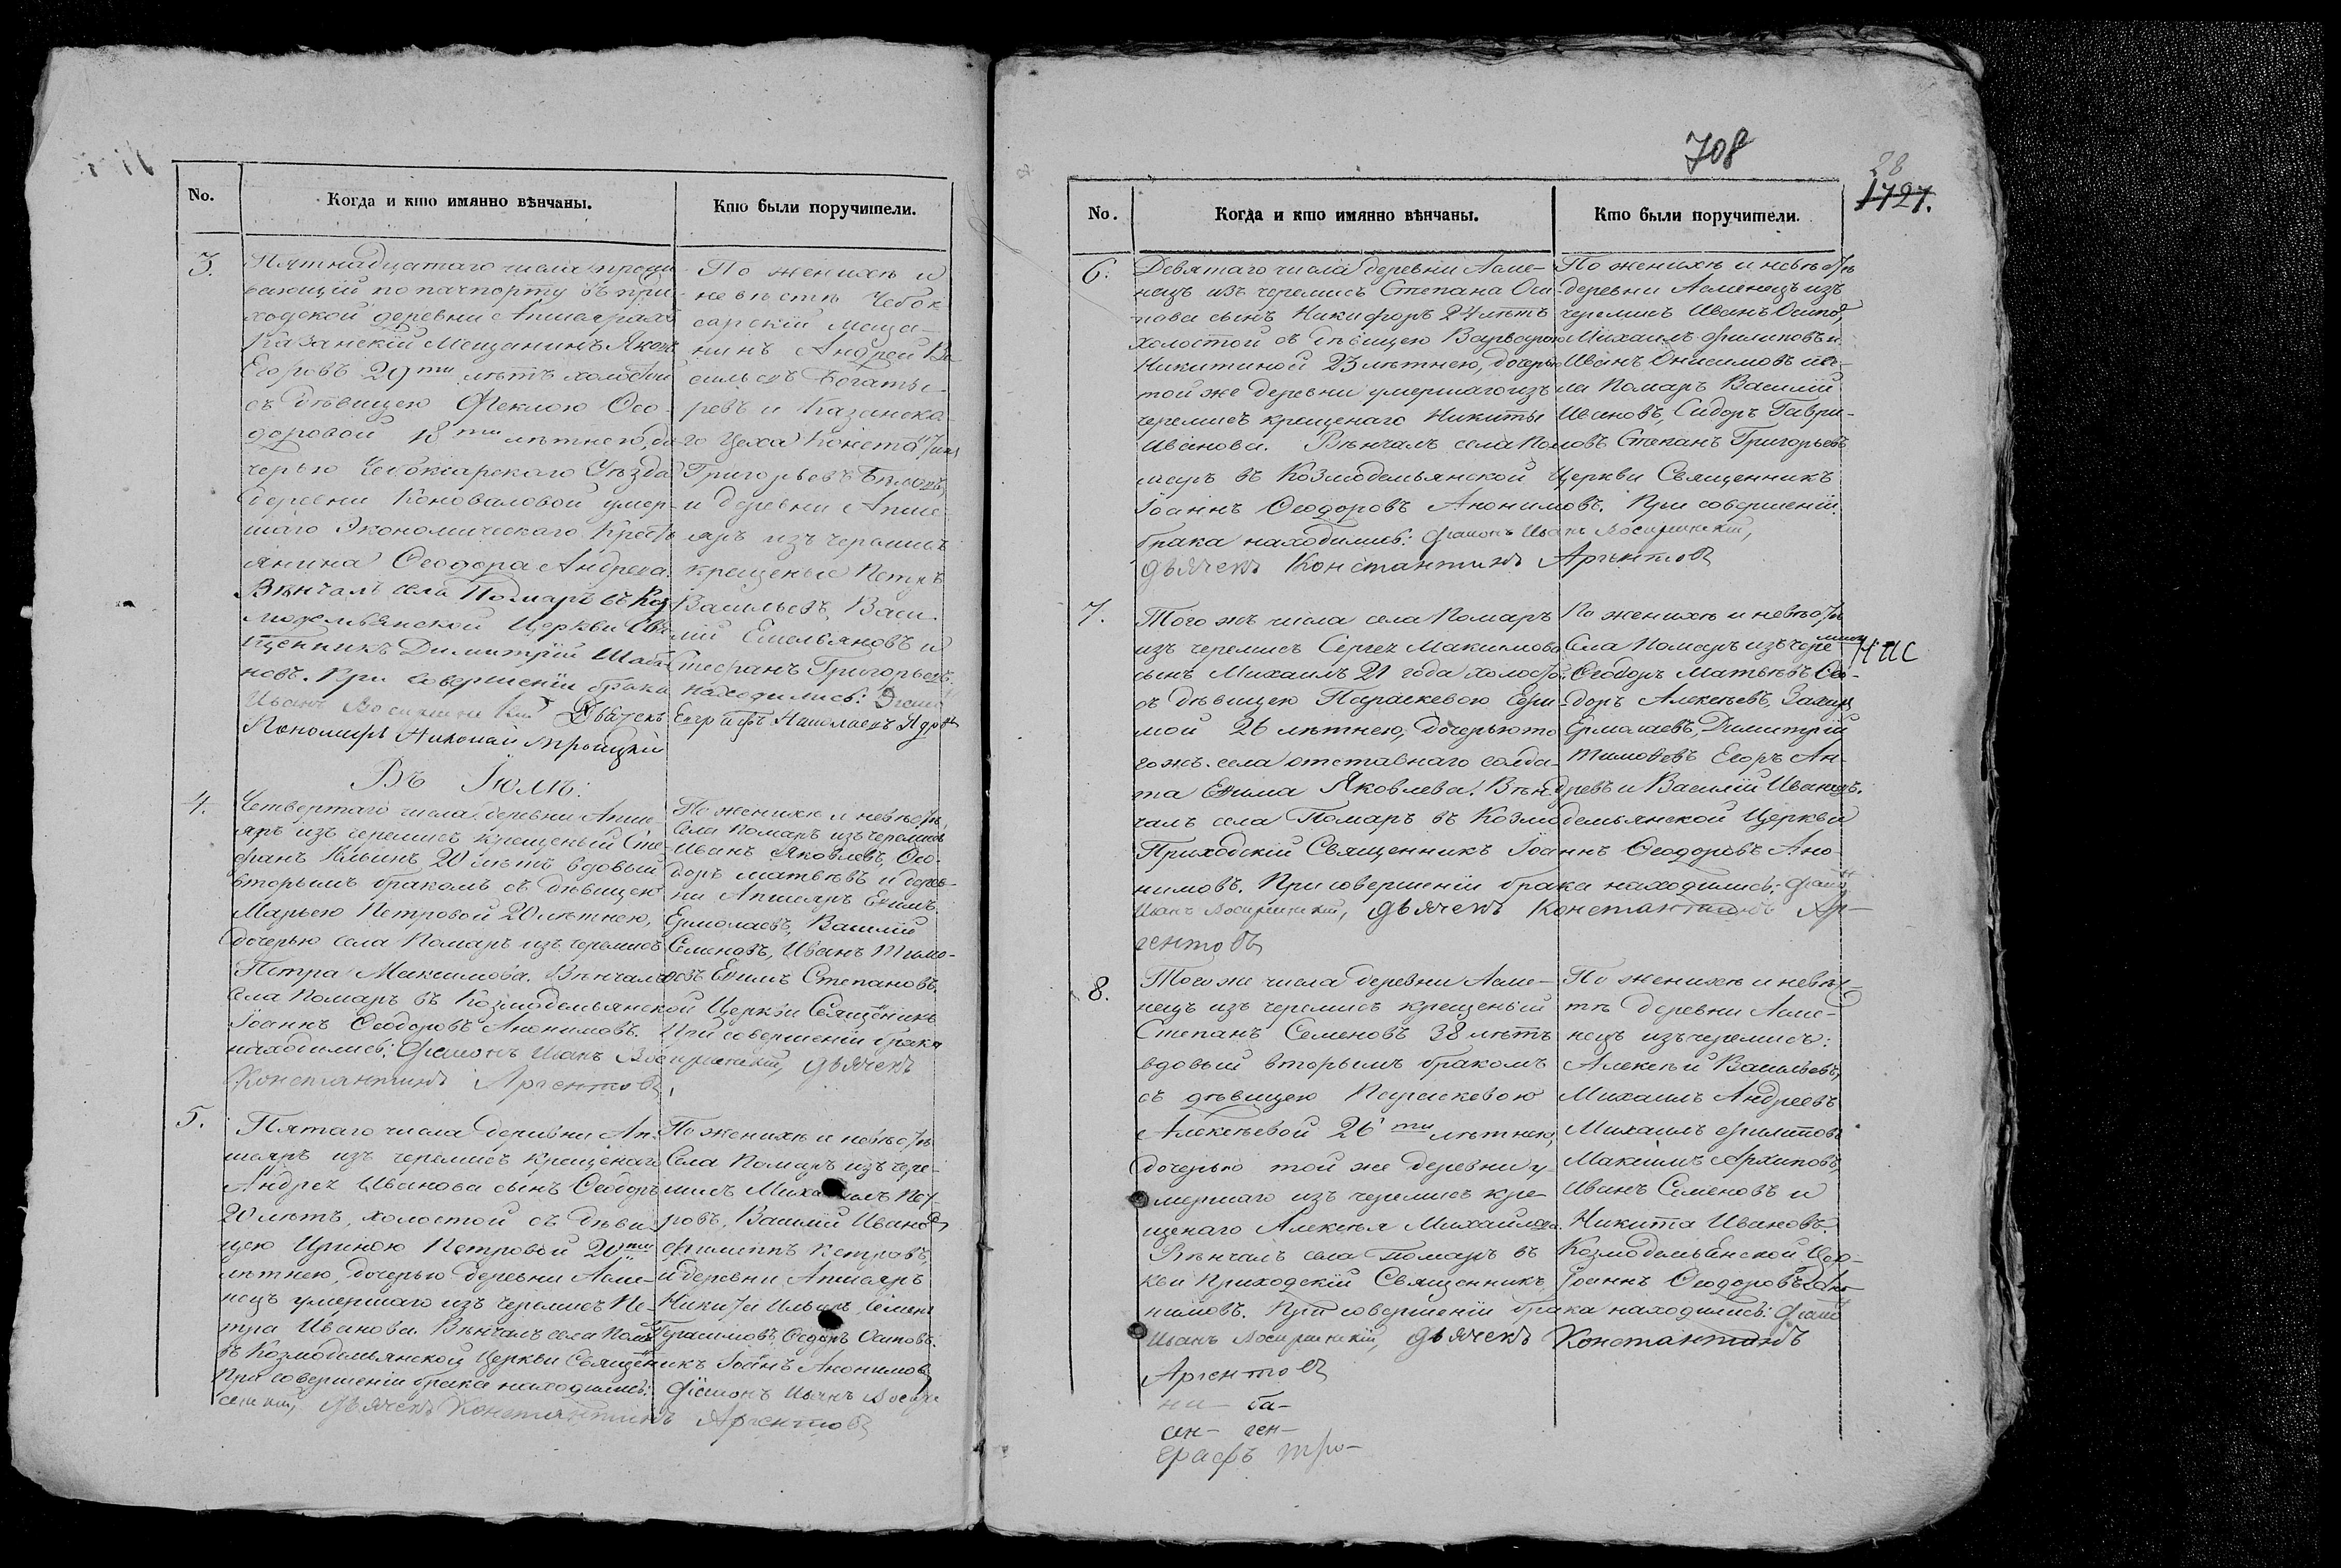 No.
Когда и кто имянно вѣнчаны.
Кто были поручители.
3.
Пятнадцатаго числа прожи
вающій по пачпорту въ при
ходской деревни Апшаярахъ
Казанскій Мещанинъ Яковъ
Егоровъ 29ти лѣтъ холостой
съ дѣвицею Феклою Ѳео
доровой 18ти лѣтнею, до
черью Чебоксарскаго Уѣзда
деревни Коноваловой умер
шаго Экономическаго Кресть
янина Ѳеодора Андреева.
Вѣнчалъ села Помаръ въ Коз
модемьянской Церкви Свя
щенникъ Димитрій
новъ. При совершеніи брака
Иванъ Дьячекъ
Пономарь Николай Троицкій
По женихѣ и
невѣстѣ Чебок
сарскій меща
нинъ Андрей Ва
сильевъ Богаты
ревъ и Казанска
го Цеха Констан
Григорьевъ
и деревни Апша
яръ изъ черемисъ
крещеные Петръ
Васильевъ, Васи
лій Емельяновъ и
Стефанъ Григорьевъ,
находились:
Въ Іюлѣ:
4.
Четвертаго числа деревни Апша
яръ изъ черемисъ крещеный Сте
фанъ Ильинъ 20 лѣтъ вдовый
вторымъ бракомъ съ дѣвицею
Марьею Петровой 20 лѣтнею,
дочерью села Помаръ изъ черемисъ
Петра Максимова. Вѣнчалъ
села Помаръ въ Козмодемьянской Церкви Священникъ
Іоаннъ Ѳеодоровъ Анонимовъ. При совершеніи брака
находились: Діаконъ Иванъ дьячекъ
Константинъ Аргентовъ
По женихѣ и невѣстѣ
Села Помаръ изъ черемисъ
Иванъ Яковлевъ, Ѳео-
доръ Матвѣевъ и дерев-
ни Апшаяръ Ефимъ
Ермолаевъ, Василій
Семеновъ, Иванъ Тимо-
Ефимъ Степановъ.
5.
Пятаго числа деревни Ап-
шаяръ изъ черемисъ крещенаго
Андрея Иванова сынъ Ѳеодоръ
20 лѣтъ, холостой съ дѣви
цею Ириною Петровой 20ти
лѣтнею, дочерью деревни Асме-
нецъ умершаго изъ черемисъ Пе-
тра Иванова. Вѣнчалъ села Помаръ
въ Козмодемьянской Церкви Священникъ Іоаннъ Анонимовъ
При совершеніи брака находились: Діаконъ Иванъ
дьячекъ Константинъ Аргентовъ
По женихѣ и невѣстѣ
Села Помаръ изъ чере-
мисъ Михаилъ Пет-
ровъ, Василій Ивановъ
Филиппъ Петровъ,
и деревни Апшаяръ
Никита Ильинъ, Семенъ
Герасимовъ, Ѳедоръ Осиповъ.
708
28
1727.
No.
Когда и кто имянно вѣнчаны.
Кто были поручители.
6.
Девятаго числа деревни Асме-
нецъ изъ черемисъ Степана Оси
пова сынъ Никифоръ 24 лѣтъ
холостой съ дѣвицею Варварою
Никитиной 23 лѣтнею, дочерью
той же деревни умершаго изъ
черемисъ крещенаго Никиты
Иванова. Вѣнчалъ села По
маръ въ Козмодемьянской Церкви Священникъ
Іоаннъ Ѳеодоровъ Анонимовъ. При совершеніи
брака находились: Діаконъ Иванъ
дьячекъ Константинъ Аргентовъ
По женихѣ и невѣстѣ
деревни Асменецъ изъ
черемисъ Иванъ Осиповъ,
Михаилъ Филиповъ и
Иванъ Онисимовъ и се-
ла Помаръ Василій
Ивановъ, Сидоръ Гаври-
ловъ Степанъ Григорьевъ
7.
Того жъ числа села Помаръ
изъ черемисъ Сергея Максимова
сынъ Михаилъ 21 года холостой
съ дѣвицею Параскевою Ефи
мой 26 лѣтнею, дочерью то
гожъ села отставнаго солда
та Ефима Яковлева. Вѣн
чалъ села Помаръ въ Козмодемьянской Церкви
Приходскій Священникъ Іоаннъ Ѳеодоровъ Ано-
нимовъ. При совершеніи брака находились: Діаконъ
Иванъ дьячекъ Константинъ Ар-
гентовъ
По женихѣ и невѣстѣ
Села Помаръ изъ черемисъ
Ѳеодоръ Матвѣевъ Ѳео-
доръ Алексѣевъ, Захаръ
Ермолаевъ, Димитрій
Тимоѳеевъ Егоръ Ан-
древъ и Василій Ивановъ.
8.
Того же числа деревни Асме-
нецъ изъ черемисъ крещеный
Степанъ Семеновъ 38 лѣтъ
вдовый вторымъ бракомъ
съ дѣвицею Параскевою
Алексѣевой 26ти лѣтнею,
дочерью той же деревни у-
мершаго изъ черемисъ кре-
щенаго Алексѣя Михайлова.
Вѣнчалъ села Помаръ въ Козмодемьянской Цер-
кви Приходскій Священникъ Іоаннъ Ѳеодоровъ Ано-
нимовъ. При совершеніи брака находились: Діаконъ
Иванъ дьячекъ Константинъ
Аргентовъ
По женихѣ и невѣс-
тѣ деревни Асме-
нецъ изъ черемисъ:
Алексѣй Васильевъ,
Михаилъ Андреевъ
Михаилъ Филиповъ
Максимъ Архиповъ,
Иванъ Семеновъ и
Никита Ивановъ.
ни- ба-
ген-
графъ тро-